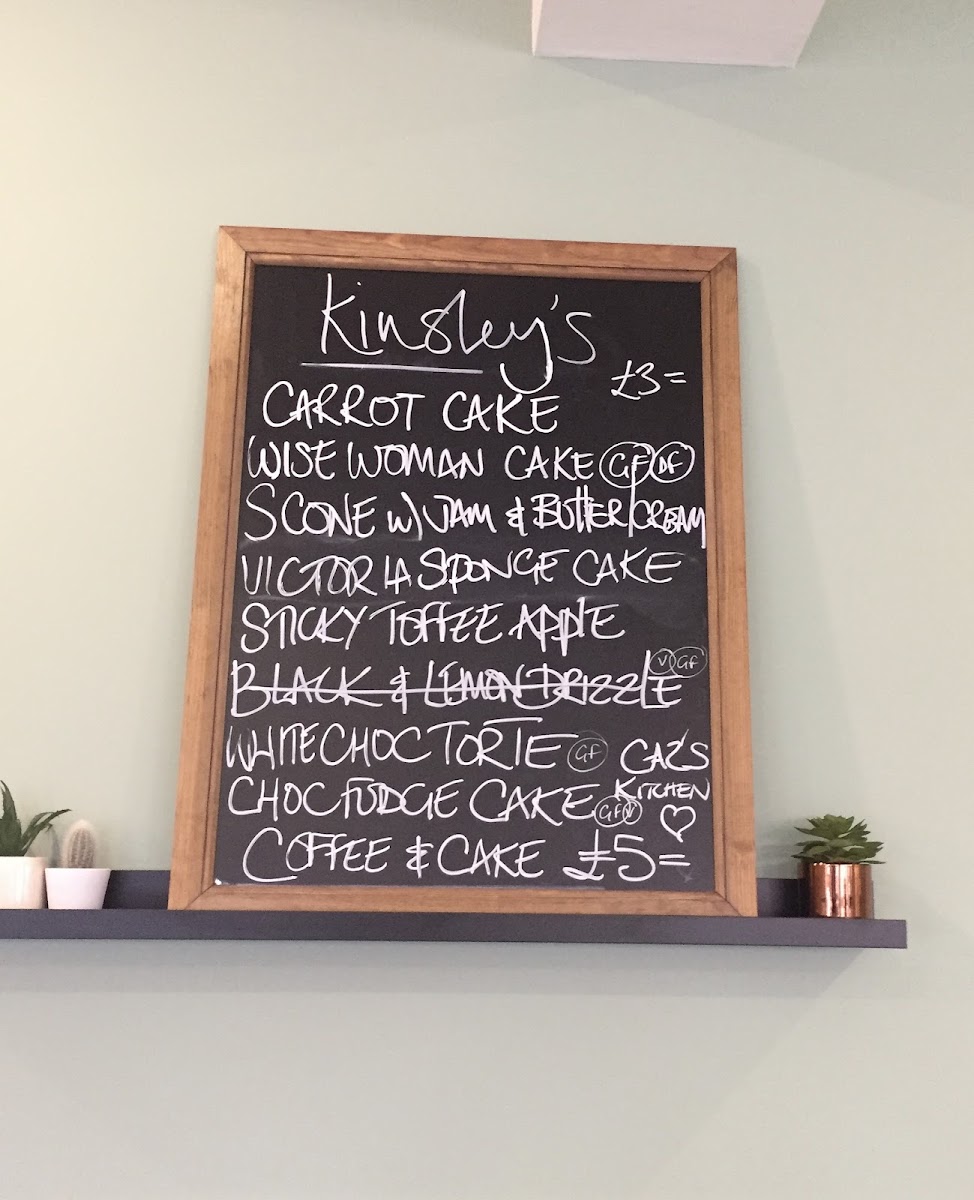 Kinsley's
£3=
CARROT CAKE
WISE WOMAN CAKE GF DF
SCONE W/ JAM & BUTTER/CREAM
VICTORIA SPONGE CAKE
STICKY TOFFEE APPLE
BLACK & LEMON DRIZZLE V GF
WHITE CHOC TORTE GF
CHOC FUDGE CAKE GF V
CAZ'S
KITCHEN
COFFEE & CAKE £5=